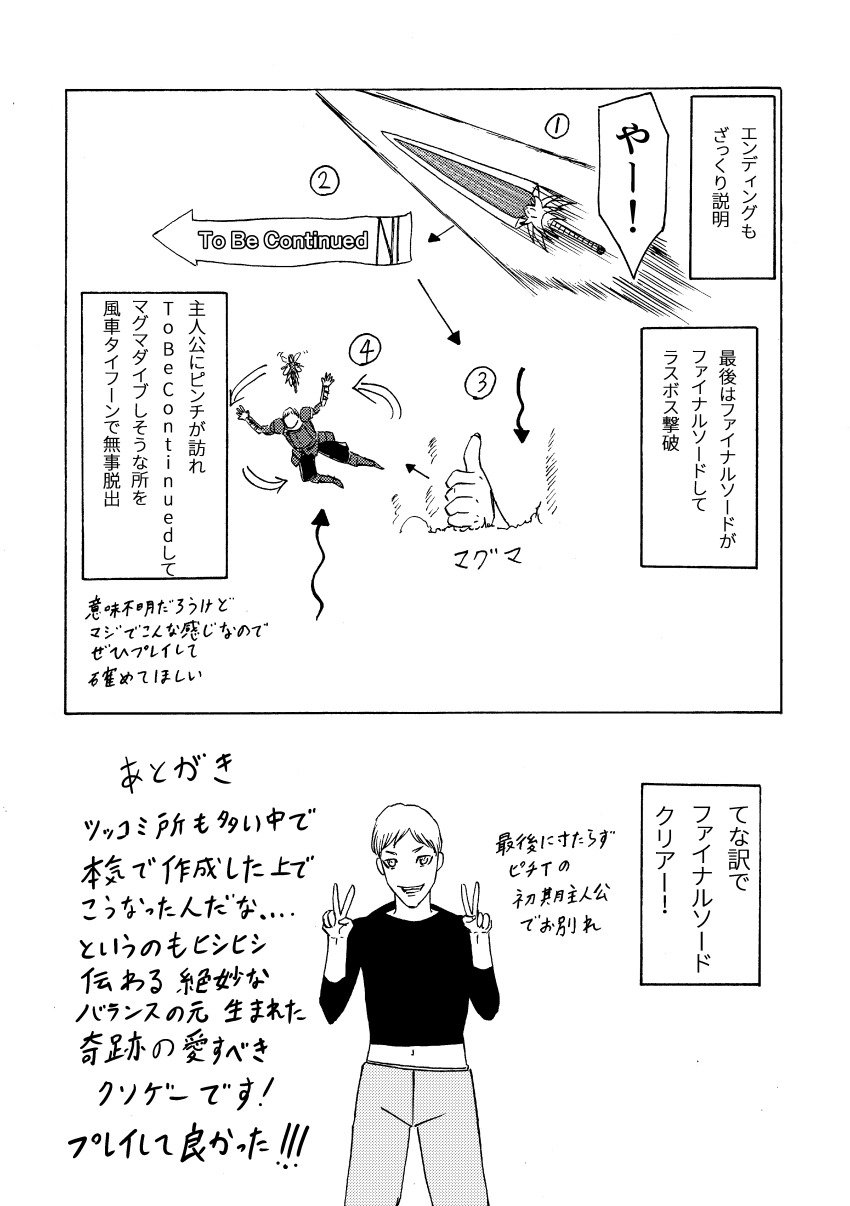 エンディングも
ざっくり説明
やー！
①
②
To Be Continued
最後はファイナルソードが
ファイナルソードして
ラスボス撃破
③
マグマ
④
主人公にピンチが訪れ
ToBeContinuedして
マグマダイブしそうな所を
風車タイフーンで無事脱出
意味不明だろうけど
マジでこんな感じなので
ぜひプレイして
確めてほしい
てな訳で
ファイナルソード
クリアー！
最後に寸たらず
ピチTの
初期主人公
でお別れ
あとがき
ツッコミ所も多い中で
本気で作成した上で
こうなった人だな....
というのもヒシヒシ
伝わる絶妙な
バランスの元 生まれた
奇跡の愛すべき
クソゲーです!
プレイして良かった!!!